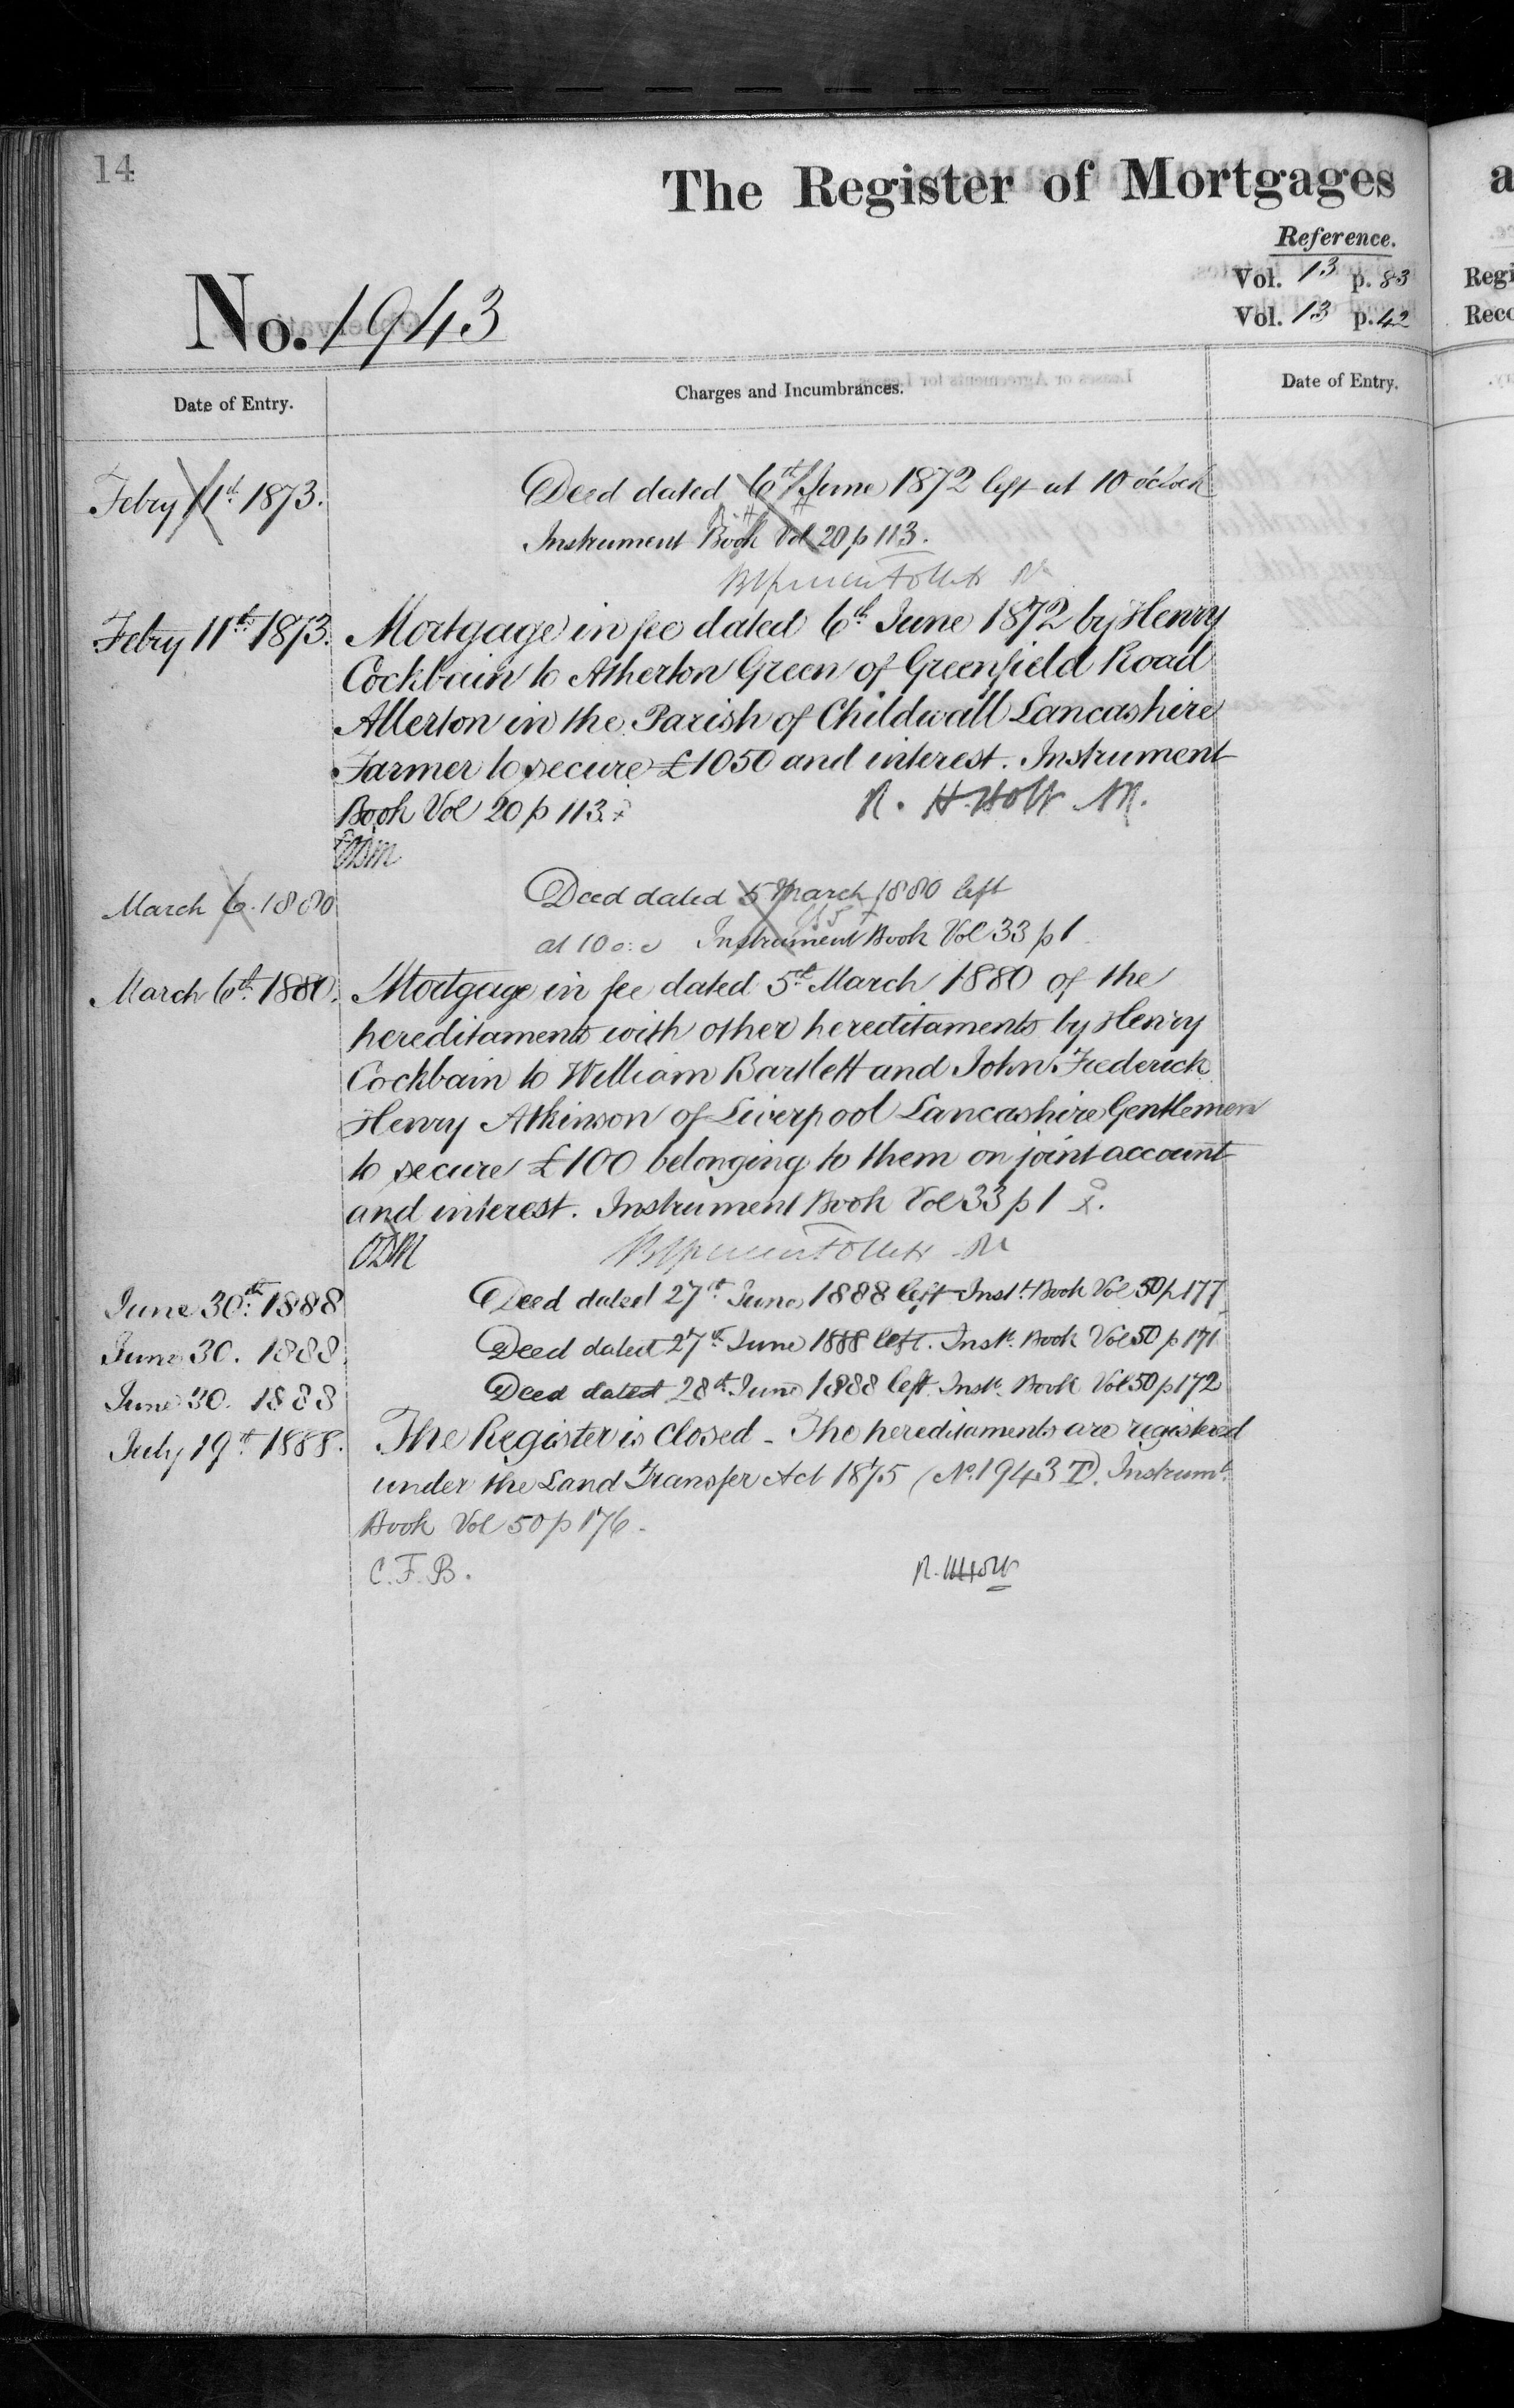 14
The Register of Mortgages
Reference.
Vol. 13 p. 83
Vol. 13 p. 42
No. 1943
Date of Entry.
Charges and Incumbrances.
Date of Entry.
Febry 11th 1873.
Deed dated 6th June 1872 left at 10 o'clock
Instrument Book Vol 20 p 113.
Febry 11th 1873.
Mortgage in fee dated 6th June 1872 by Henry
Cockbain to Atherton Green of Greenfield Road
Allerton in the Parish of Childwall Lancashire
Farmer to secure £1050 and interest. Instrument
Book Vol 20 p 113.
R. H. Holt
March 6. 1880
Deed dated 5 March 1880 left
at 10 o: c Instrument Book Vol 33 p 1
March 6th 1880.
Mortgage in fee dated 5th March 1880 of the
hereditaments with other hereditaments by Henry
Cockbain to William Bartlett and John Frederick
Henry Atkinson of Liverpool Lancashire Gentlemen
to secure £100 belonging to them on joint account
and interest. Instrument Book Vol 33 p 1
June 30th 1888
Deed dated 27th June 1888 left Inst. Book Vol 50 p 177
June 30. 1888.
Deed dated 27th June 1888 left. Inst. Book Vol 50 p 171
June 30. 1888
Deed dated 28th June 1888 left. Inst. Book Vol 50 p 172
July 19th 1888.
The Register is Closed - The hereditaments are registered
under the Land Transfer Act 1875 (No. 1943 T). Instrumt.
Book Vol 50 p 176.
C. F. B.
R. H. Holt
a
Regi
Reco